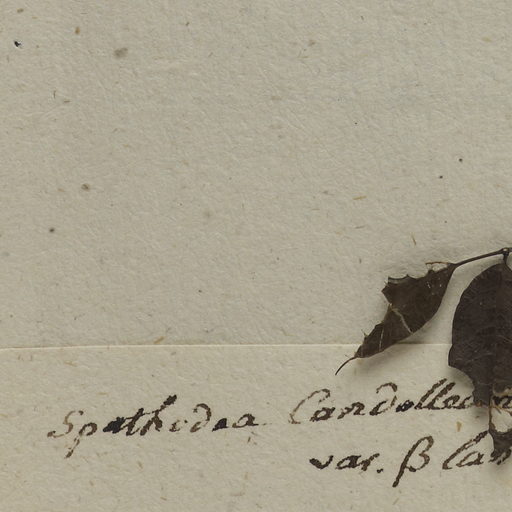 Spathodea Candollea
var. β lan